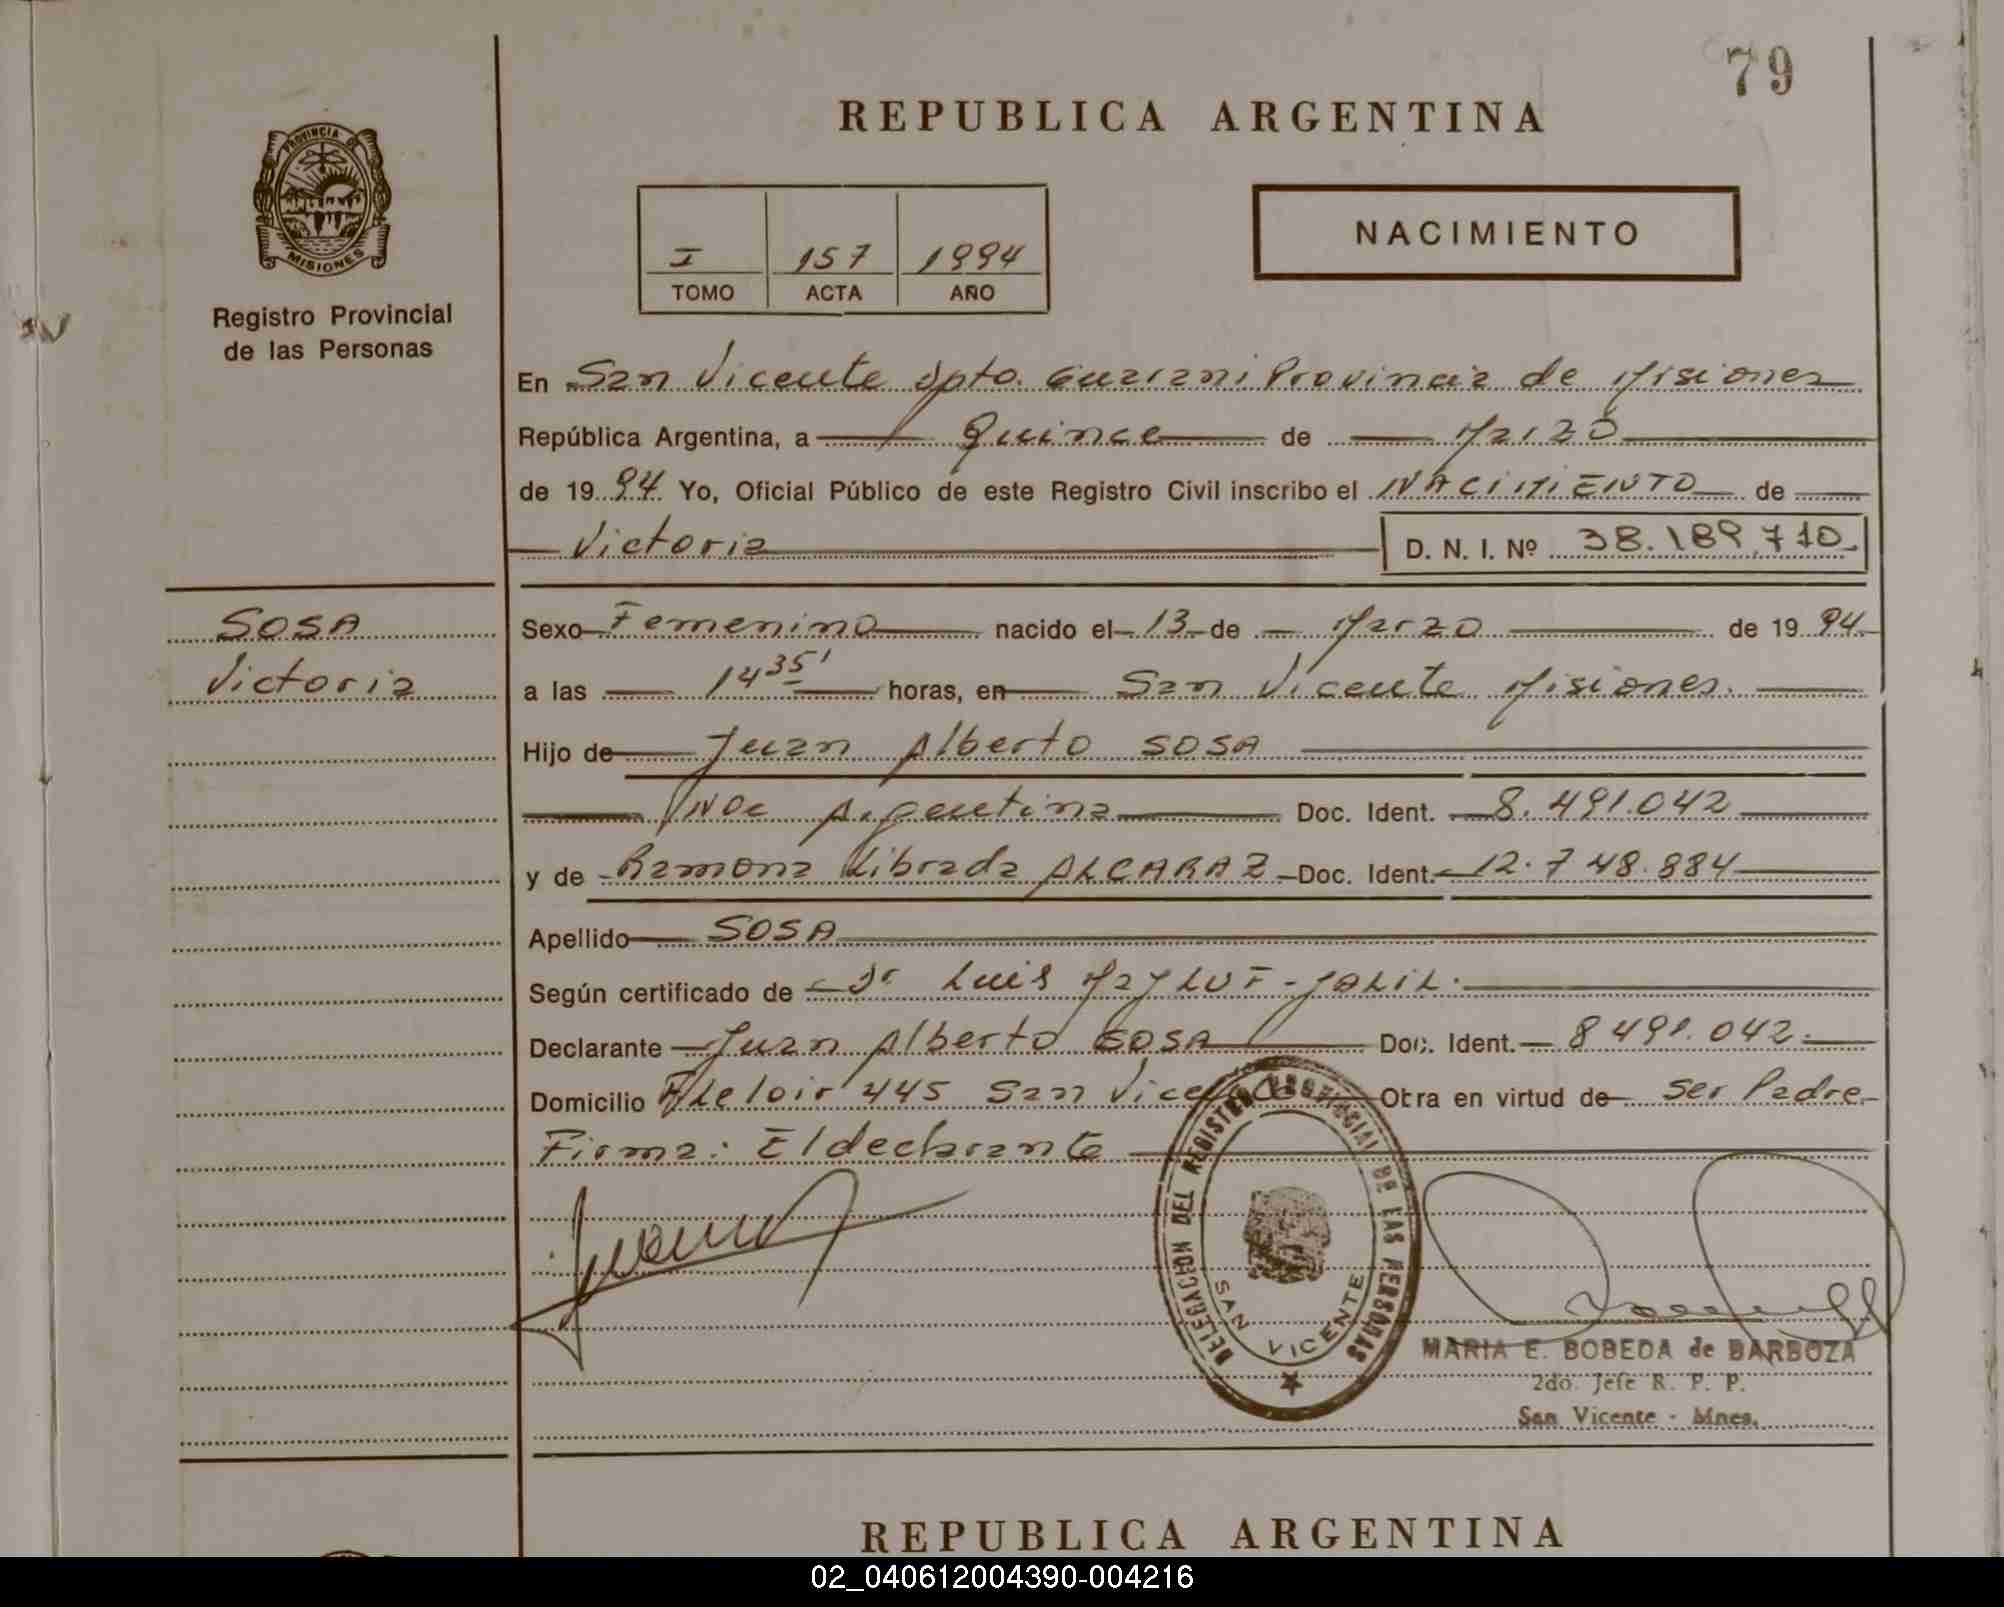 79
REPUBLICA ARGENTINA
PROVINCIA DE
MISIONES
Registro Provincial
de las Personas
I 157 1994
TOMO ACTA AÑO
NACIMIENTO
En San Vicente Dpto. Guarani Provincia de Misiones
República Argentina, a Quince de Marzo
de 1994. Yo, Oficial Público de este Registro Civil inscribo el NACIMIENTO de
Victoria D. N. I. Nº 38.189.710
SOSA
Victoria
Sexo Femenino nacido el 13 de Marzo de 1994
a las 14 35' horas, en San Vicente Misiones.
Hijo de Juan Alberto SOSA
Nac Argentina Doc. Ident. 8.491.042
y de Ramona Librada ALCARAZ Doc. Ident. 12.748.884
Apellido SOSA
Según certificado de Dr Luis JALIL.
Declarante Juan Alberto SOSA Doc. Ident. 8491.042.
Domicilio 445 San Vicente Obra en virtud de Ser Padre
Firma: El declarante
DELEGACION DEL REGISTRO PROVINCIAL DE LAS PERSONAS
SAN VICENTE
MARIA E. BOBEDA de BARBOZA
2do. Jefe R. P. P.
San Vicente - Mnes.
REPUBLICA ARGENTINA
02_040612004390-004216